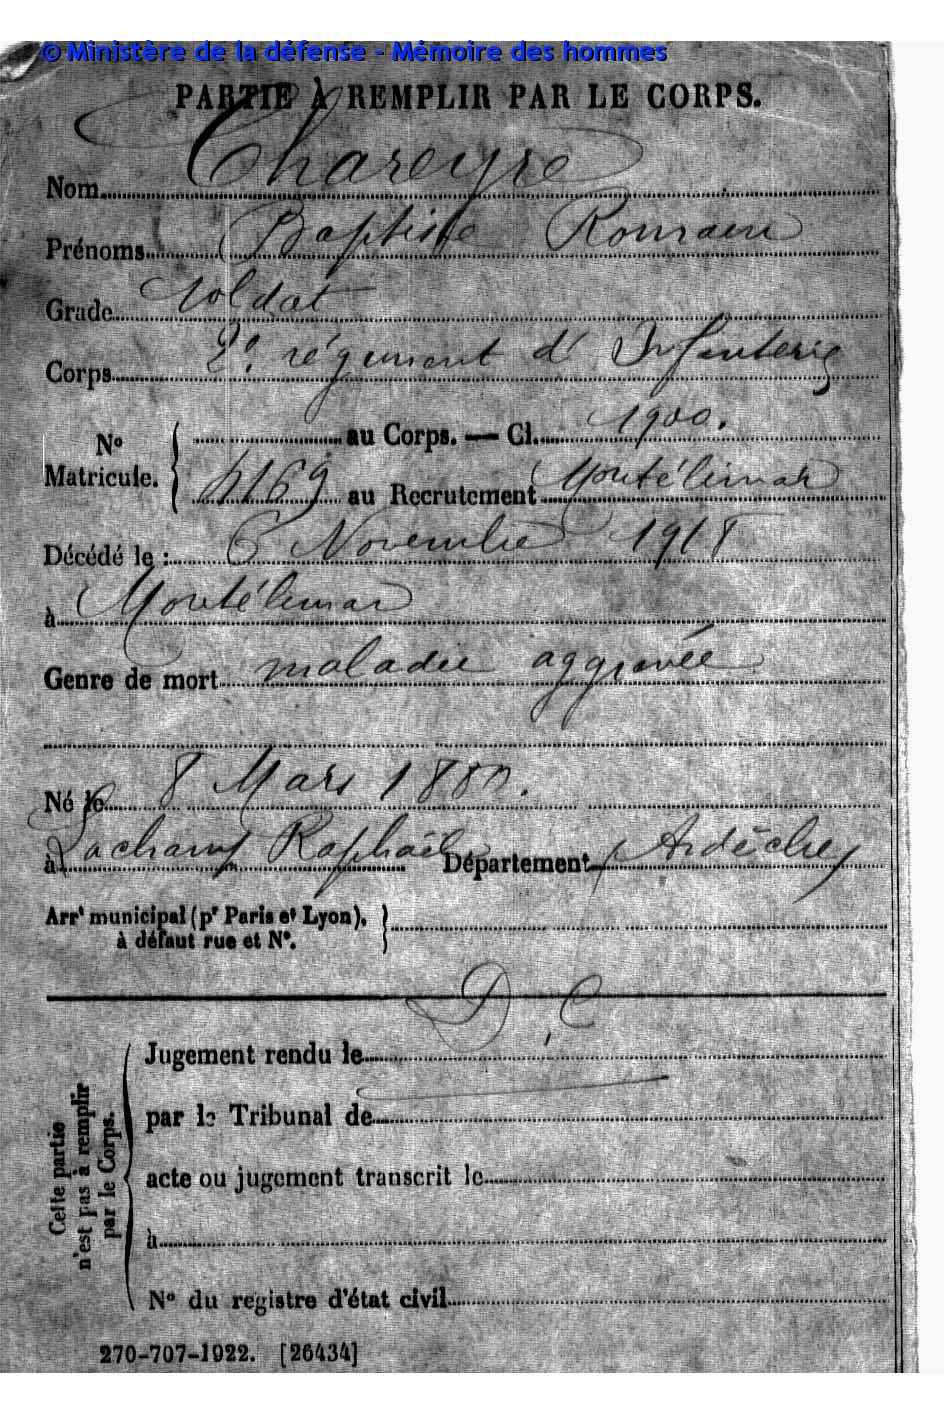 © Ministère de la défense - Mémoire des hommes
PARTIE À REMPLIR PAR LE CORPS.
Nom Chareyre
Prénoms Baptiste Romain
Grade Soldat
Corps 2e régiment d'Infanterie
No Matricule. { au Corps. — Cl. 1900.
4169 au Recrutement Montélimar
Décédé le : 6 Novembre 1918
à Montélimar
Genre de mort maladie aggravée
Né le 8 Mars 1880.
à Lachamp Raphaël Département Ardèche
Arrt municipal (pr Paris et Lyon), }
à défaut rue et No.
D, C
Cette partie n'est pas à remplir par le Corps.
Jugement rendu le
par le Tribunal de
acte ou jugement transcrit le
à
No du registre d'état civil
270-707-1922. [26434]